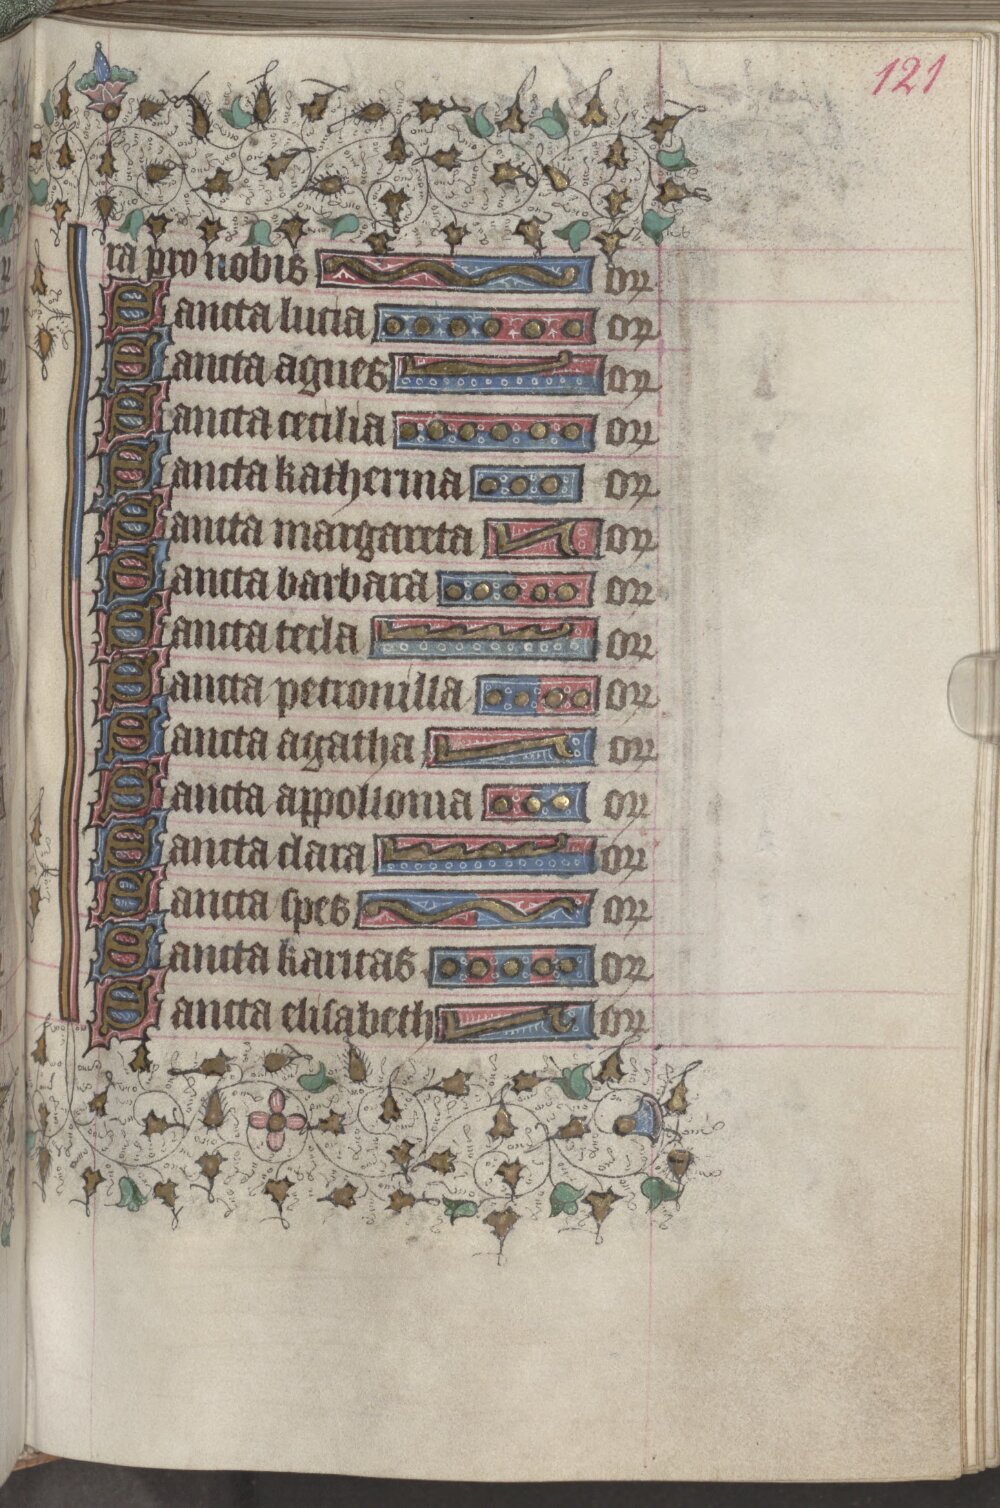 121
ra pro nobis or
Sancta lucia or
Sancta agnes or
Sancta cecilia or
Sancta katherina or
Sancta margareta or
Sancta barbara or
Sancta tecla or
Sancta petronilla or
Sancta agatha or
Sancta appollonia or
Sancta clara or
Sancta spes or
Sancta karitas or
Sancta elisabeth or